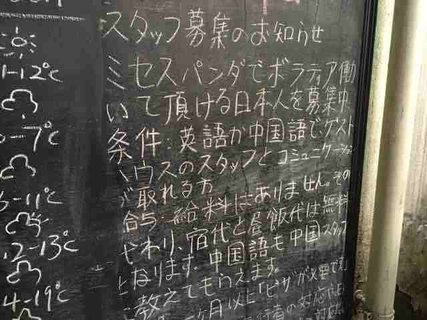 スタッフ募集のお知らせ
ミセスパンダでボラティア働
いて頂ける日本人を募集中
条件:英語か中国語でゲスト
ハウスのスタッフとコミュニケーション
が取れる方
給与:給料はありません。その
かわり、宿代と昼飯代は無料
となります。中国語も中国スタッフ
が教えてもらえます。
ヶ月以上ビザが必要
の対応
-12℃
-7℃
3-11℃
2-13℃
4-19℃